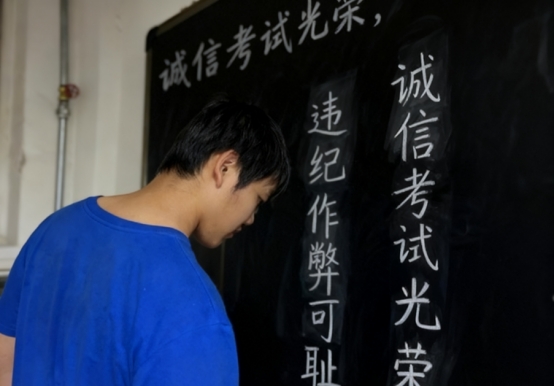 诚信考试光荣,
诚信考试光荣
违纪作弊可耻